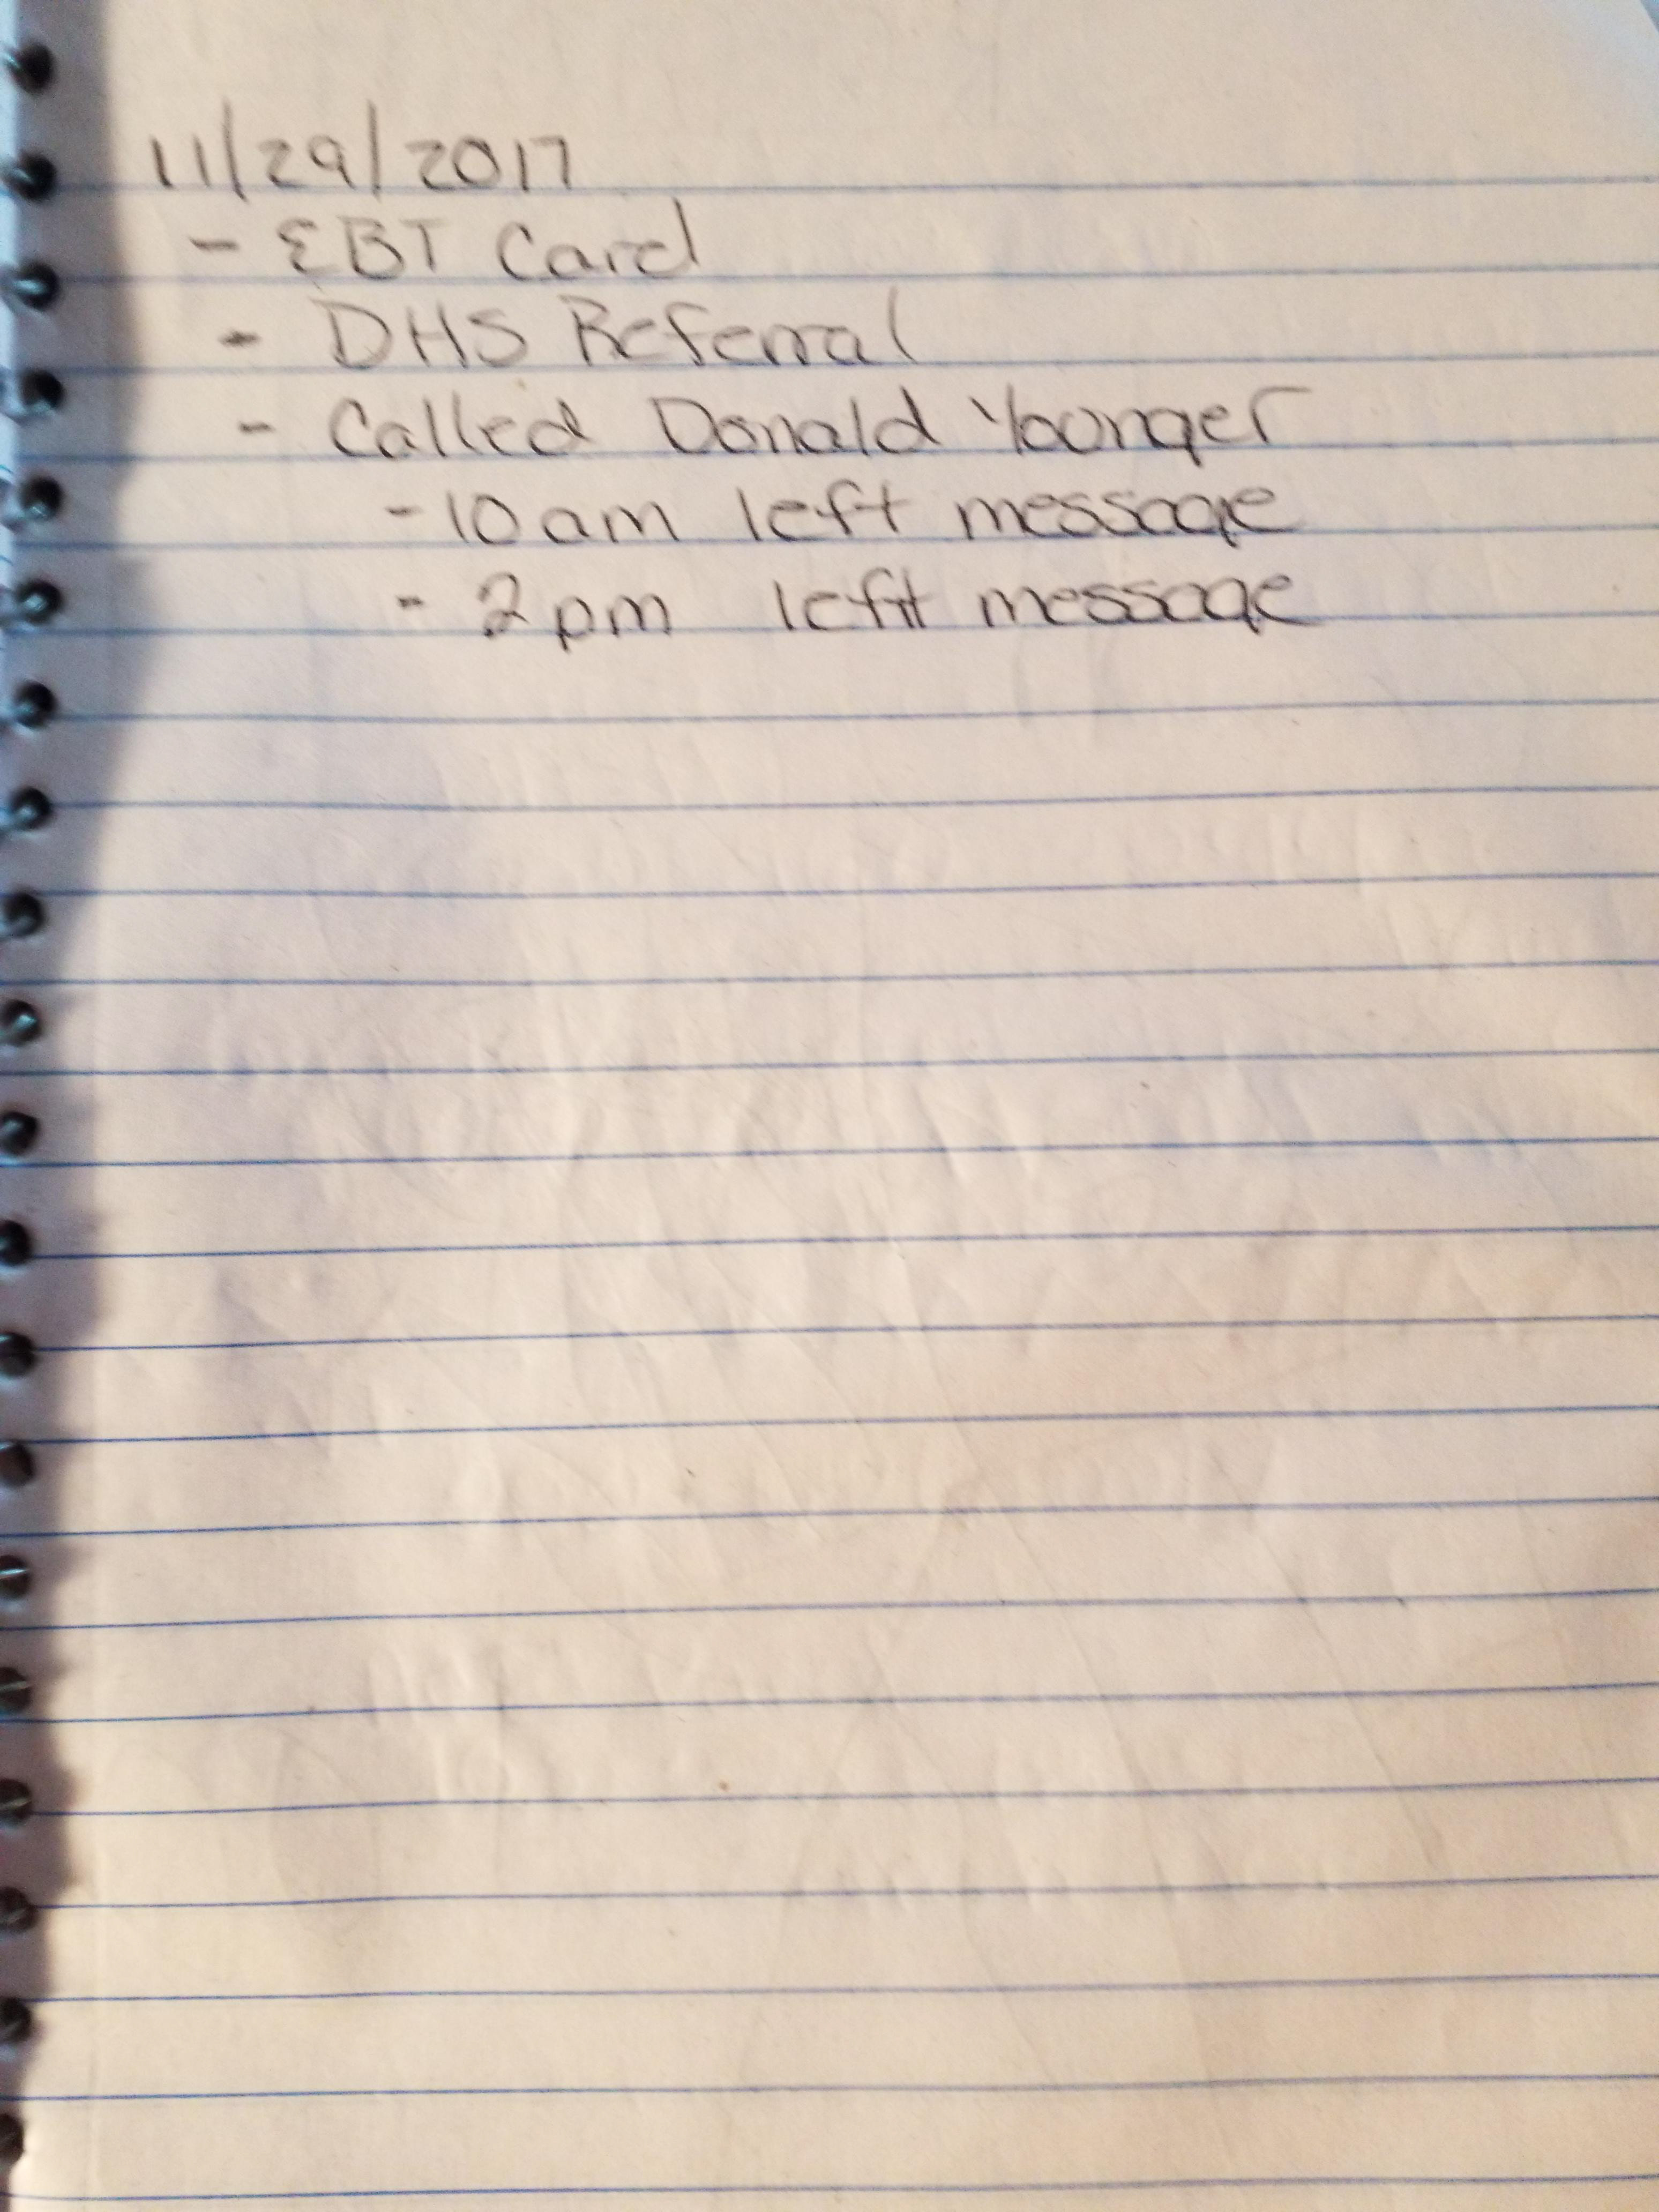 11/29/2017
- EBT Card
- DHS Referral
- Called Donald Younger
- 10 am left message
- 2 pm left message